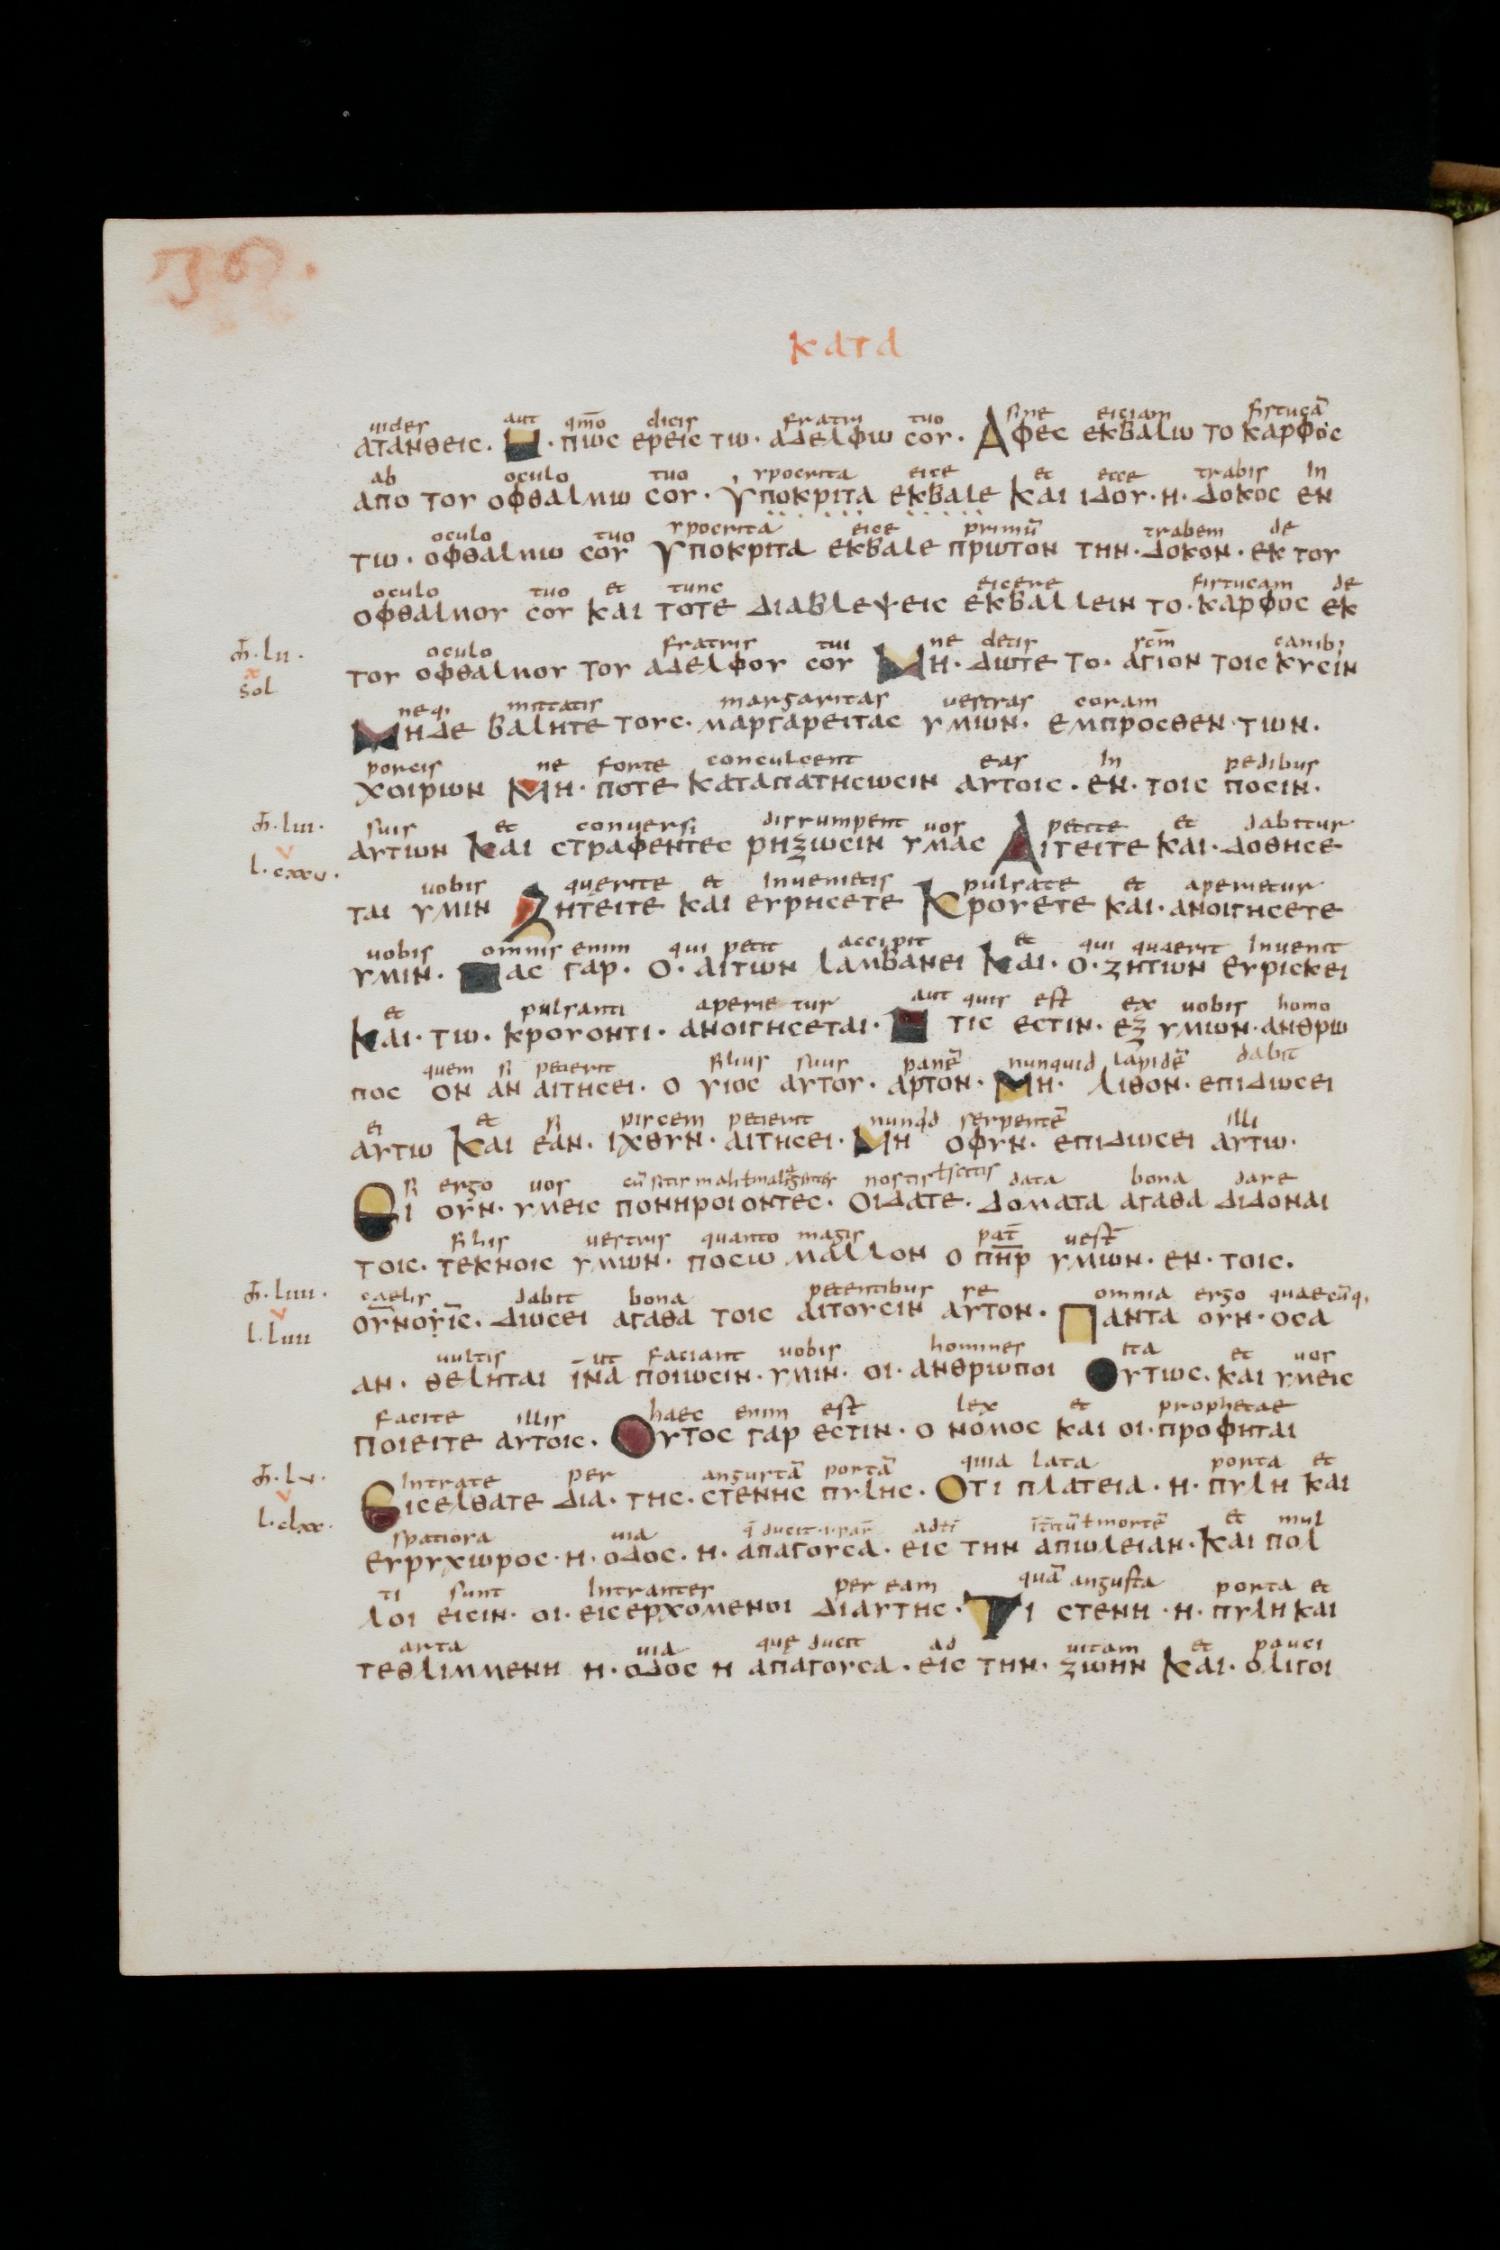 38.
κατα
uides aut qm̄o dicis fratri tuo sine eiciam festucā
ατανθεις. Η· πως ερεις τω· αδελφω σου· Αφες εκβαλω το καρφος
ab oculo tuo ypocrita eice et ecce trabis in
απο του οφθαλμω σου· Υποκριτα εκβαλε και ιδου·η· δοκος εν
oculo tuo ypocrita eice primū trabem de
τω· οφθαλμω σου Υποκριτα εκβαλε πρωτον την·δοκον· εκ του
oculo tuo et tunc eicere festucam de
οφθαλμου σου και τοτε διαβλεψεις εκβαλλειν το·καρφος εκ
oculo fratris tui ne detis sc̄m canib;
μθ·lii· του οφθαλμου του αδελφου σου Μη· δωτε το· αγιον τοις κυσιν
x
sol
neq; mittatis margaritas uestras coram
Μηδε βαλητε τους· μαργαρειτας υμων· εμπροσθεν·των·
porcis ne forte conculcent eas in pedibus
χοιρων Μη· ποτε καταπατησωσιν αυτοις· εν· τοις ποσιν·
suis et conuersi disrumpent uos petite et dabitur
μθ·liii· αυτων και στραφεντες ρηξωσιν υμας Αιτειτε και·δοθησε
v
l·cxxv·
uobis querite et inuenietis pulsate et aperietur
ται υμιν Ζητειτε και ευρησετε Κρουετε και·ανοιγησετε
uobis omnis enim qui petit accipit et qui quaerit inuenit
υμιν· Πας γαρ· ο·αιτων λαμβανει Και·ο·ζητων ευρισκει
et pulsanti aperietur aut quis est ex uobis homo
Και·τω·κρουοντι· ανοιγησεται· Η τις εστιν·εξ υμων·ανθρω
quem si petierit filius suus panē nunquid lapidē dabit
πος ον αν αιτησει· ο υιος αυτου· αρτον· Μη· λιθον· επιδωσει
ei et si piscem petierit nunqd serpentē illi
αυτω Και εαν· ιχθυν·αιτησει· Μη οφυν· επιδωσει αυτω·
si ergo uos cū sitis mali nostis data bona dare
Ει ουν· υμεις πονηροι οντες· Οιδατε· δοματα αγαθα διδοναι
filiis uestris quanto magis pat̄ uest̄
τοις· τεκνοις υμων· ποσω μαλλον ο πη̄ρ υμων·εν·τοις·
caelis dabit bona petentibus se omnia ergo quaecūq;
μθ·liiii· ουνοῡις· δωσει αγαθα τοις αιτουσιν αυτον· Παντα ουν·οσα
v
l·liiii
uultis ut faciant uobis homines ita et uos
αν· θεληται ινα ποιωσιν·υμιν· οι·ανθρωποι Ουτως·και υμεις
facite illis haec enim est lex et prophetae
ποιειτε αυτοις· Ουτος γαρ εστιν·ο νομος και οι·προφηται
intrate per angustā portā quia lata porta et
μθ·lv· Εισελθατε δια·της·στενης πυλης· Οτι πλατεια·η·πυλη και
v
l·clxx·
spatiosa uia ducit mortē et mul
ευρυχωρος·η·οδος·η·απαγουσα·εις την απωλειαν·Και πολ
ti sunt intrantes per eam quā angusta porta et
λοι εισιν·οι·εισερχομενοι διαυτης· Τι στενη·η·πυλη και
arta uia quę ducit ad uitam et pauci
τεθλιμμενη η·οδος η απαγουσα·εις την·ζωην Και·ολιγοι